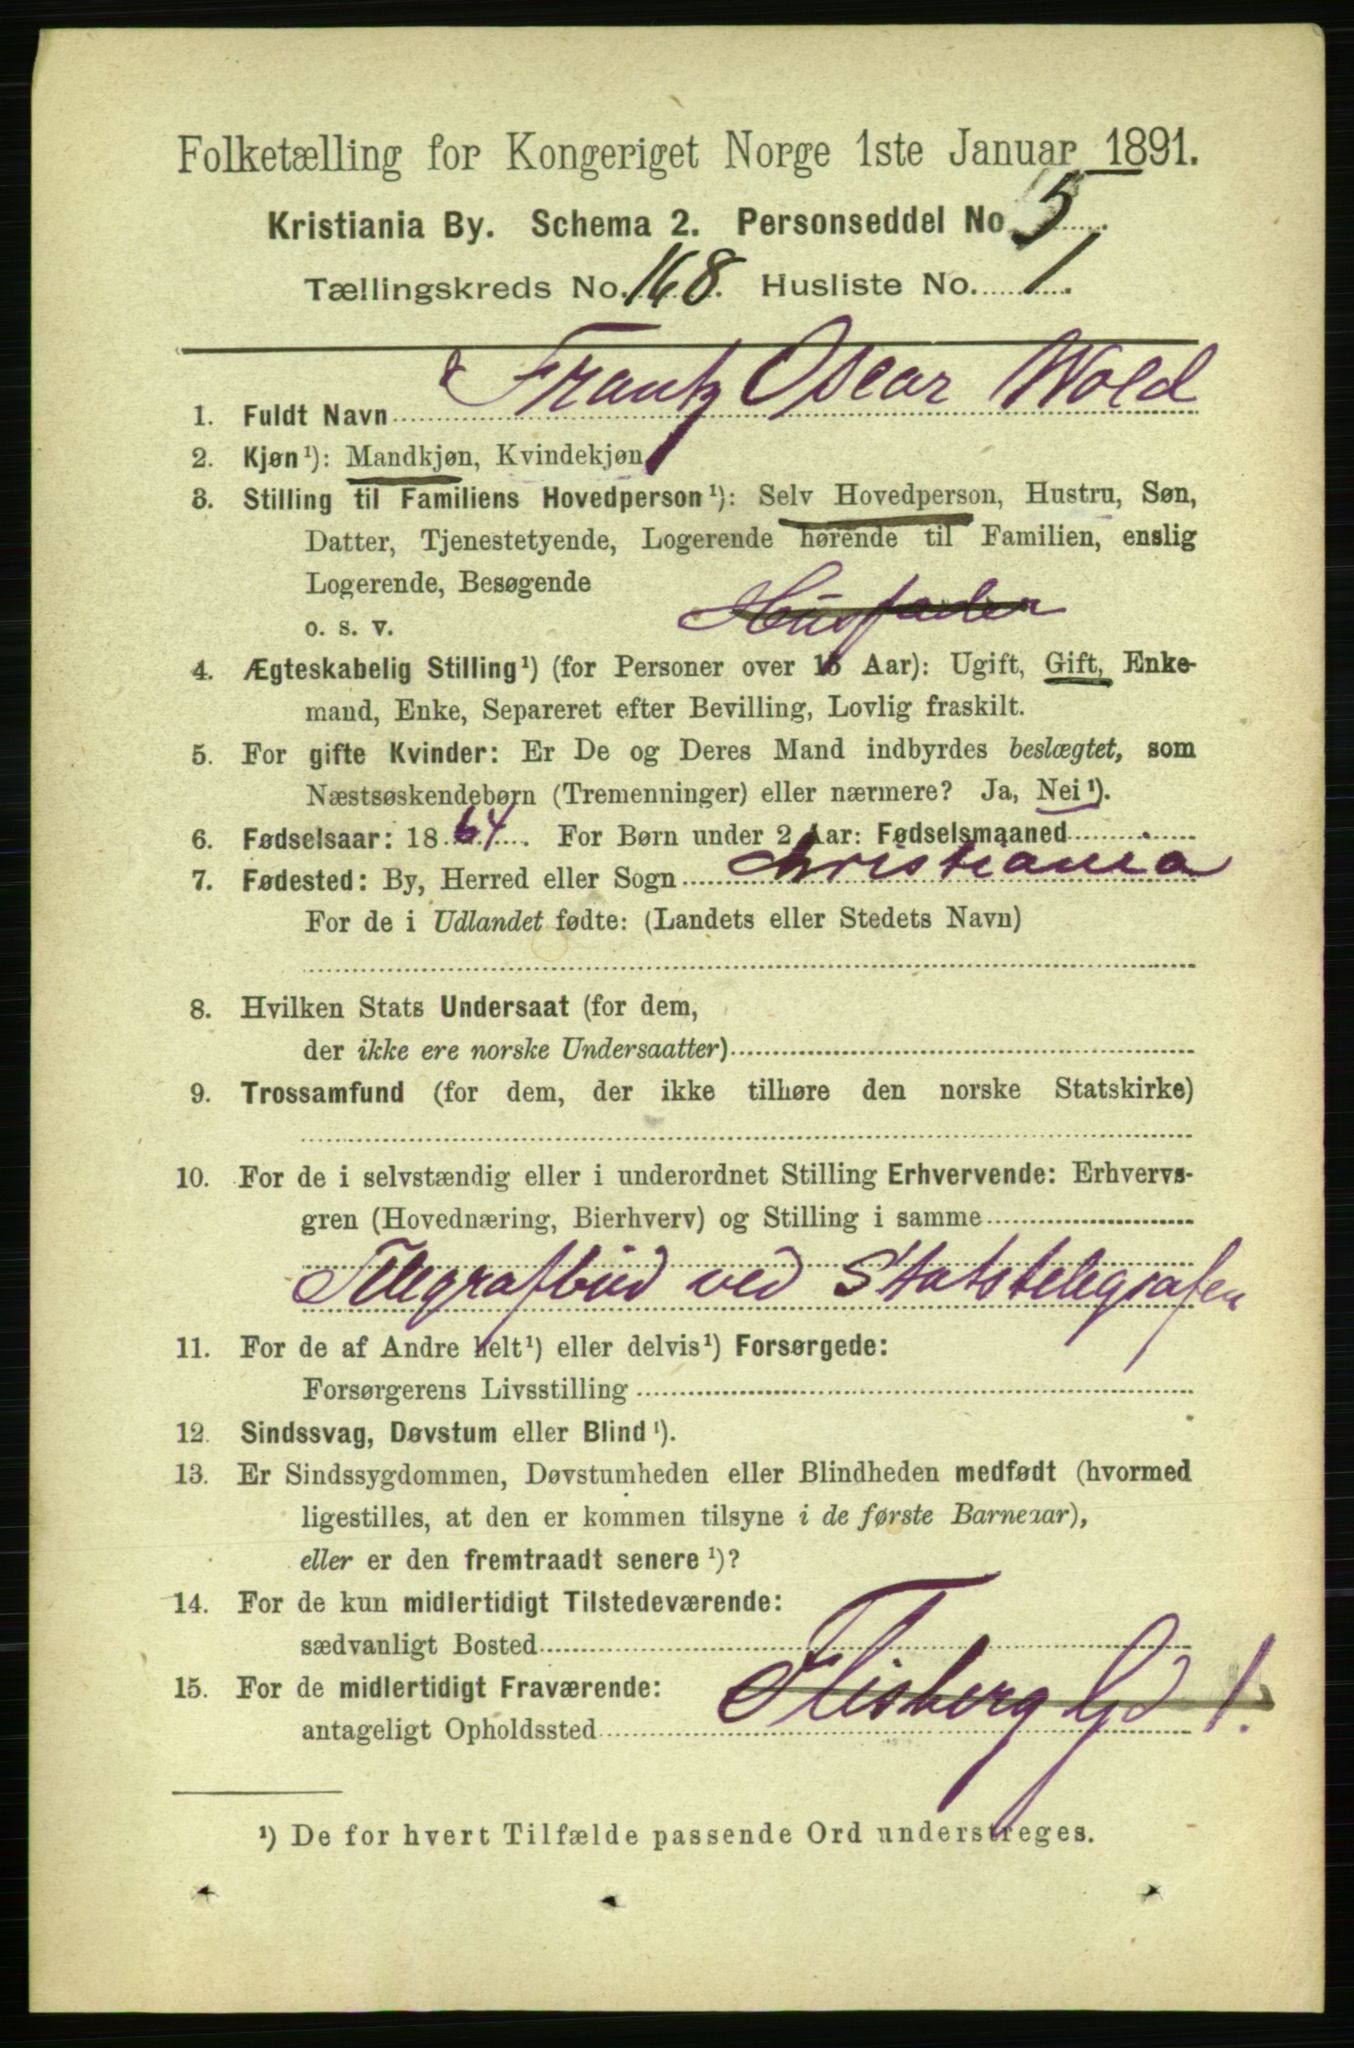 Folketælling for Kongeriget Norge 1ste Januar 1891.
Kristiania By. Schema 2. Personseddel No 5
Tællingskreds No. 168. Husliste No. 1.
1. Fuldt Navn Frantz Oscar Wold
2. Kjøn¹): Mandkjøn, Kvindekjøn
3. Stilling til Familiens Hovedperson¹): Selv Hovedperson, Hustru, Søn,
Datter, Tjenestetyende, Logerende hørende til Familien, enslig
Logerende, Besøgende
o. s. v. Husfader
4. Ægteskabelig Stilling¹) (for Personer over 15 Aar): Ugift, Gift, Enke-
mand, Enke, Separeret efter Bevilling, Lovlig fraskilt.
5. For gifte Kvinder: Er De og Deres Mand indbyrdes beslægtet, som
Næstsøskendebørn (Tremenninger) eller nærmere? Ja, Nei¹).
6. Fødselsaar: 1864. For Børn under 2 Aar: Fødselsmaaned
7. Fødested: By, Herred eller Sogn Christiania
For de i Udlandet fødte: (Landets eller Stedets Navn)
8. Hvilken Stats Undersaat (for dem,
der ikke ere norske Undersaatter)
9. Trossamfund (for dem, der ikke tilhøre den norske Statskirke)
10. For de i selvstændig eller i underordnet Stilling Erhvervende: Erhvervs-
gren (Hovednæring, Bierhverv) og Stilling i samme
Telegrafbud ved Statstelegrafen
11. For de af Andre helt¹) eller delvis¹) Forsørgede:
Forsørgerens Livsstilling
12. Sindssvag, Døvstum eller Blind¹).
13. Er Sindssygdommen, Døvstumheden eller Blindheden medfødt (hvormed
ligestilles, at den er kommen tilsyne i de første Barneaar),
eller er den fremtraadt senere¹)?
14. For de kun midlertidigt Tilstedeværende:
sædvanligt Bosted
15. For de midlertidigt Fraværende:
antageligt Opholdssted Flisberg Gd 1.
¹) De for hvert Tilfælde passende Ord understreges.